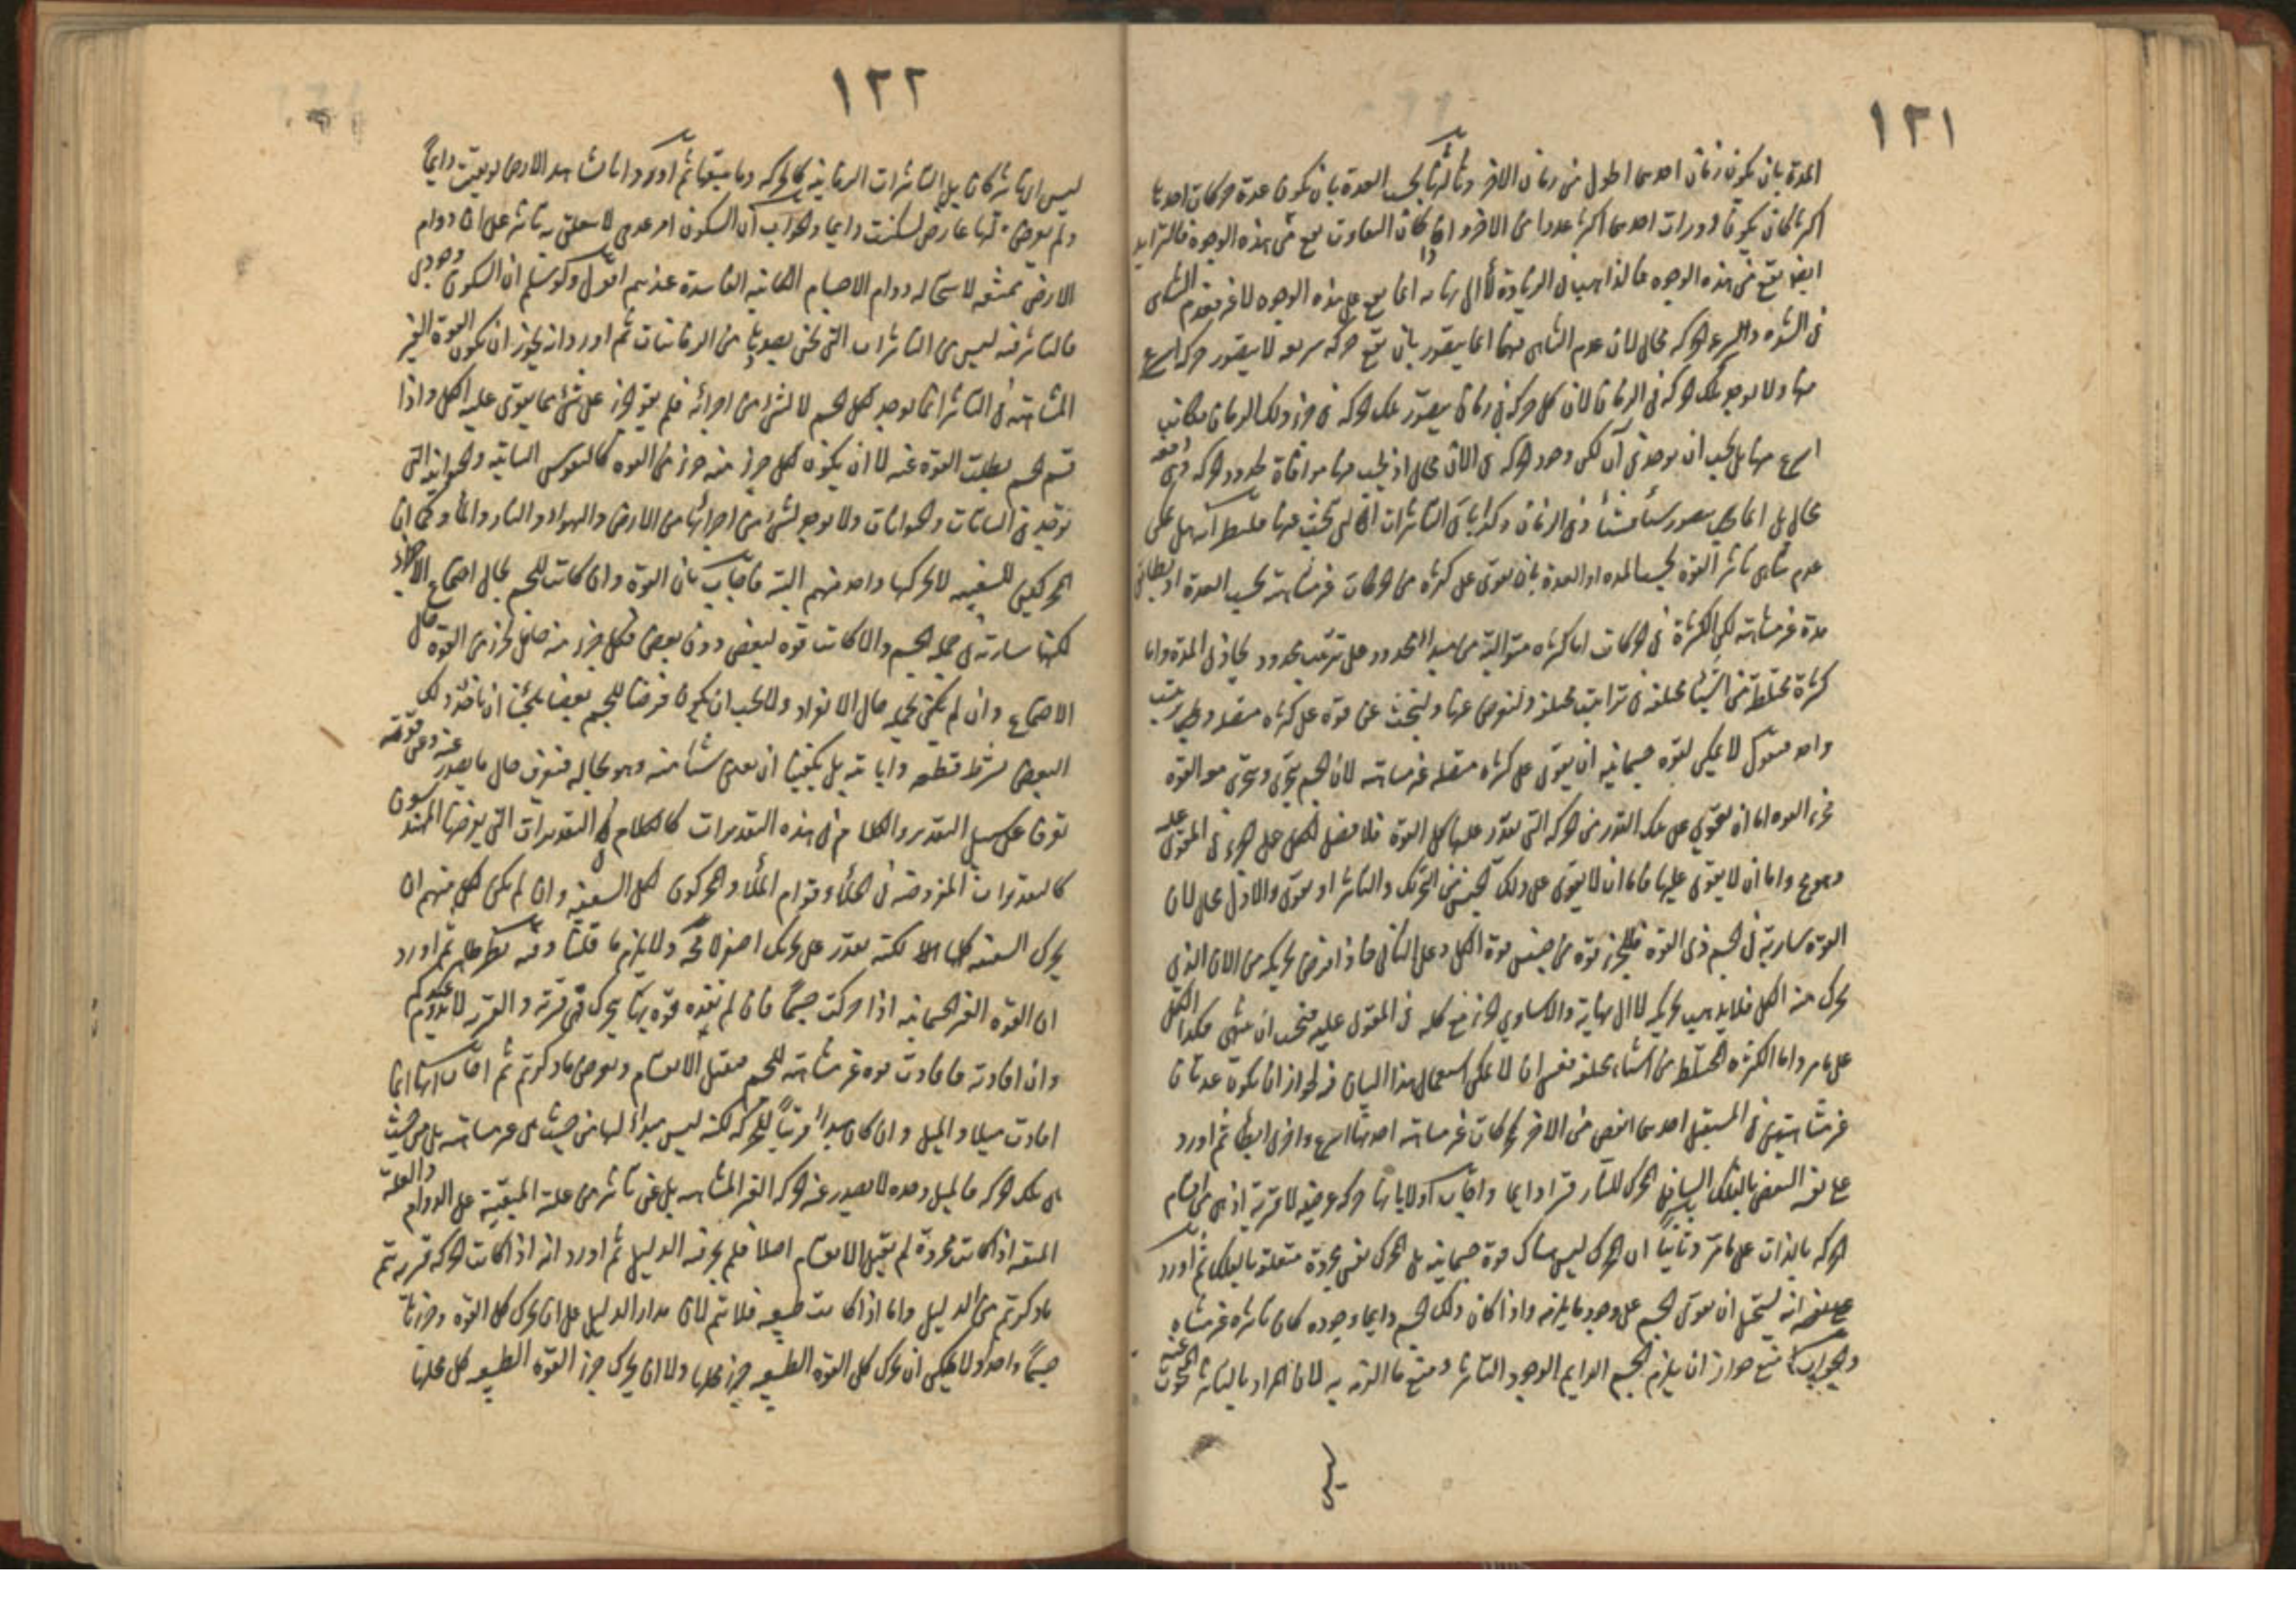 ١٢١
المدة بان يكون زمان احدهما اطول من زمان الاخر وثالثها بحسب العدة بان يكون عدة حركات احدهما
اكثر كان يكون دورات احدهما اكثر عددا من الاخر واذا كان التفاوت يقع من هذه الوجوه فالتزايد
ايضا يقع من هذه الوجوه فالذاهب في الزيادة لا الى نهاية انما يقع على هذه الوجوه لا غير فعدم التناهى
فى الشدة والسرعة الحركة محال لان عدم التناهى فيها انما يتصور بان يقع حركة سريعة لا يتصور حركة اسرع
منها ولا يوجد تلك الحركة فى الزمان لان كل حركة فى زمان يتصور تلك الحركة فى جزء ذلك الزمان فكانت
اسرع منها بل يجب ان يوجد فى آن لكن وجود الحركة فى الآن محال اذ يجب فيها موافاة حدود الحركة دفعة وهى
محال بل انما يتصور شيئا فشيئا فى الزمان وكذا باقى التاثيرات التى نبحث عنها
عدم تناهى تاثير القوة بحسب المدة او العدة بان يقوى على كثرة من الحركات غير متناهية بحسب العدة او
مدة غير متناهية لكن الكثرة فى الحركات اما كثرة متوالية من مبدأ محدود على ترتيب محدود يحاذى المدة واما
كثرة مختلطة من اشياء مختلفة فى تراتيب مختلفة ولنعرض عنها ولنبحث عن قوة على كثرة متصلة
واحد فنقول لا يمكن لقوة جسمانية ان يقوى على كثرة متصلة غير متناهية لان الجسم يتجزى ويتجزى معه القوة
فجزء القوة اما ان يقوى على تلك القدر من الحركة التى يقدر عليها كل القوة فلا يفضل الكل على الجزء فى المقوى عليه
وهو مح واما ان لا يقوى عليها فاما ان لا يقوى على ذلك الجنس من التحريك والتاثير او يقوى والاول محال لان
القوة سارية فى الجسم ذى القوة فللجزء قوة من جنس قوة الكل وعلى الثانى فاذا فرض تحريكه من الآن الذى
تحرك منه الكل فلا يذهب تحريكه لا الى نهاية والا ساوى الجزء مع كله فى المقوى عليه فيجب ان يتناهى فكذا الكل
على ما مر واما الكثرة المختلطة من اشياء مختلفة فعسى ان لا يمكن استعمال هذا البيان فيه لجواز ان يكون عدتان
غير متناهيتين فى المستقبل احدهما انقص من الاخر كحركات غير متناهية احديهما اسرع واخرى ابطأ ثم اورد
على نفسه النقض بالفلك المحرك للنار قسرا دائما واجاب اولا بانها حركة عرضية لا قسرية اذ هى من اقسام
الحركة بالذات على ما مر وثانيا ان المحرك ليس هناك قوة جسمانية بل المحرك نفس مجردة متعلقة بالفلك ثم اورد
على نفسه انه يستحيل ان يقوى الجسم على وجود ما يلزمه واذا كان ذلك الجسم دائما وجوده كان تاثيره غير متناه
والجواب منع جواز ان يلزم الجسم الدايم الوجود التاثير ومنع ما الزمه به لان المراد بالتاثير المبحوث عنه
ليس
١٢٢
ليس اى تاثير كان بل التاثيرات الزمانية كالحركة وما يتبعها ثم اورد وانا نشاهد الارض لو بقيت دايما
ولم يعرض لها عارض لسكنت دايما والجواب ان السكون امر عدمى لا يتعلق به تاثير على ان دوام
الارض ممتنع لاستحالة دوام الاجسام الكائنة الفاسدة عندهم اقول ولو سلم ان السكون وجودى
فالتاثير فيه ليس من التاثيرات التى نحن بصددها من الزمانيات ثم اورد وانه يجوز ان يكون القوة الغير
المتناهية فى التاثير انما يوجد لكل الجسم لا لشىء من اجزائه فلم يقو الجزء على شىء مما يقوى عليه الكل واذا
قسم الجسم بطلت القوة عنه لا ان يكون لكل جزء منه جزء من القوة كالنفوس النباتية والحيوانية التى
توجد فى النباتات والحيوانات ولا يوجد لشىء من اجزائها من الارض والهواء والنار والماء وكما ان
المحركين للسفينة لا يحركها واحد منهم البتة فاجاب بان القوة وان كانت للجسم بحال اجتماع الاجزاء
لكنها سارية فى جملة الجسم والا كانت قوة لبعض دون بعض فلكل جزء منه حامل لجزء من القوة حال
الاجتماع وان لم يكن يحمله حال الانفراد ولا يجب ان يكون فرضنا للجسم بعضا يلجئنا ان ناخذ ذلك
البعض بشرط قطعه وابانته بل يكفينا ان نعين شيئا منه وهو بحاله فنعرف حال ما يصدر عنه وعن قوته
تعرفا على سبيل التقدير والكلام فى هذه التقديرات كالكلام فى التقديرات التى يفرضها المهندسون
كالتقديرات المفروضة فى الخلأ وقوام الملأ والمحركون لكل السفينة وان لم يكن لكل منهم ان
يحرك السفينة كلها لكنه يقدر على تحريك اصغر لا محة ولا يلزم ما قلنا وفيه نظر ظاهر ثم اورد
ان القوة الغير الجسمانية اذا حركت جسما فان لم تفده قوة بها يحرك فهى قسرية والقسر لا يدوم عندكم
وان افادته فافادت قوة غير متناهية للجسم فتقبل الانقسام ويعرض ما ذكرتم ثم اجاب انها انما
افادت ميلا والميل وان كان مبدأ قريبا للحركة لكنه ليس مبدأ لها من حيث هى غير متناهية بل من حيث
هى تلك الحركة فالميل وحده لا يصدر عنه الحركة الغير المتناهية بل عن تاثير من علته المبقية على الدوام والعلة
المبقية اذا كانت مجردة لم يقبل الانقسام اصلا فلم يجر فيه الدليل ثم اورد انه اذا كانت الحركة قسرية تم
ما ذكرتم من الدليل واما اذا كانت طبيعية فلا يتم لان مدار الدليل على ان يحرك كل القوة وجزئها
جسما واحدا ولا يمكن ان يحرك كل القوة الطبيعية جزء محلها ولا ان يحرك جزء القوة الطبيعية كل محلها